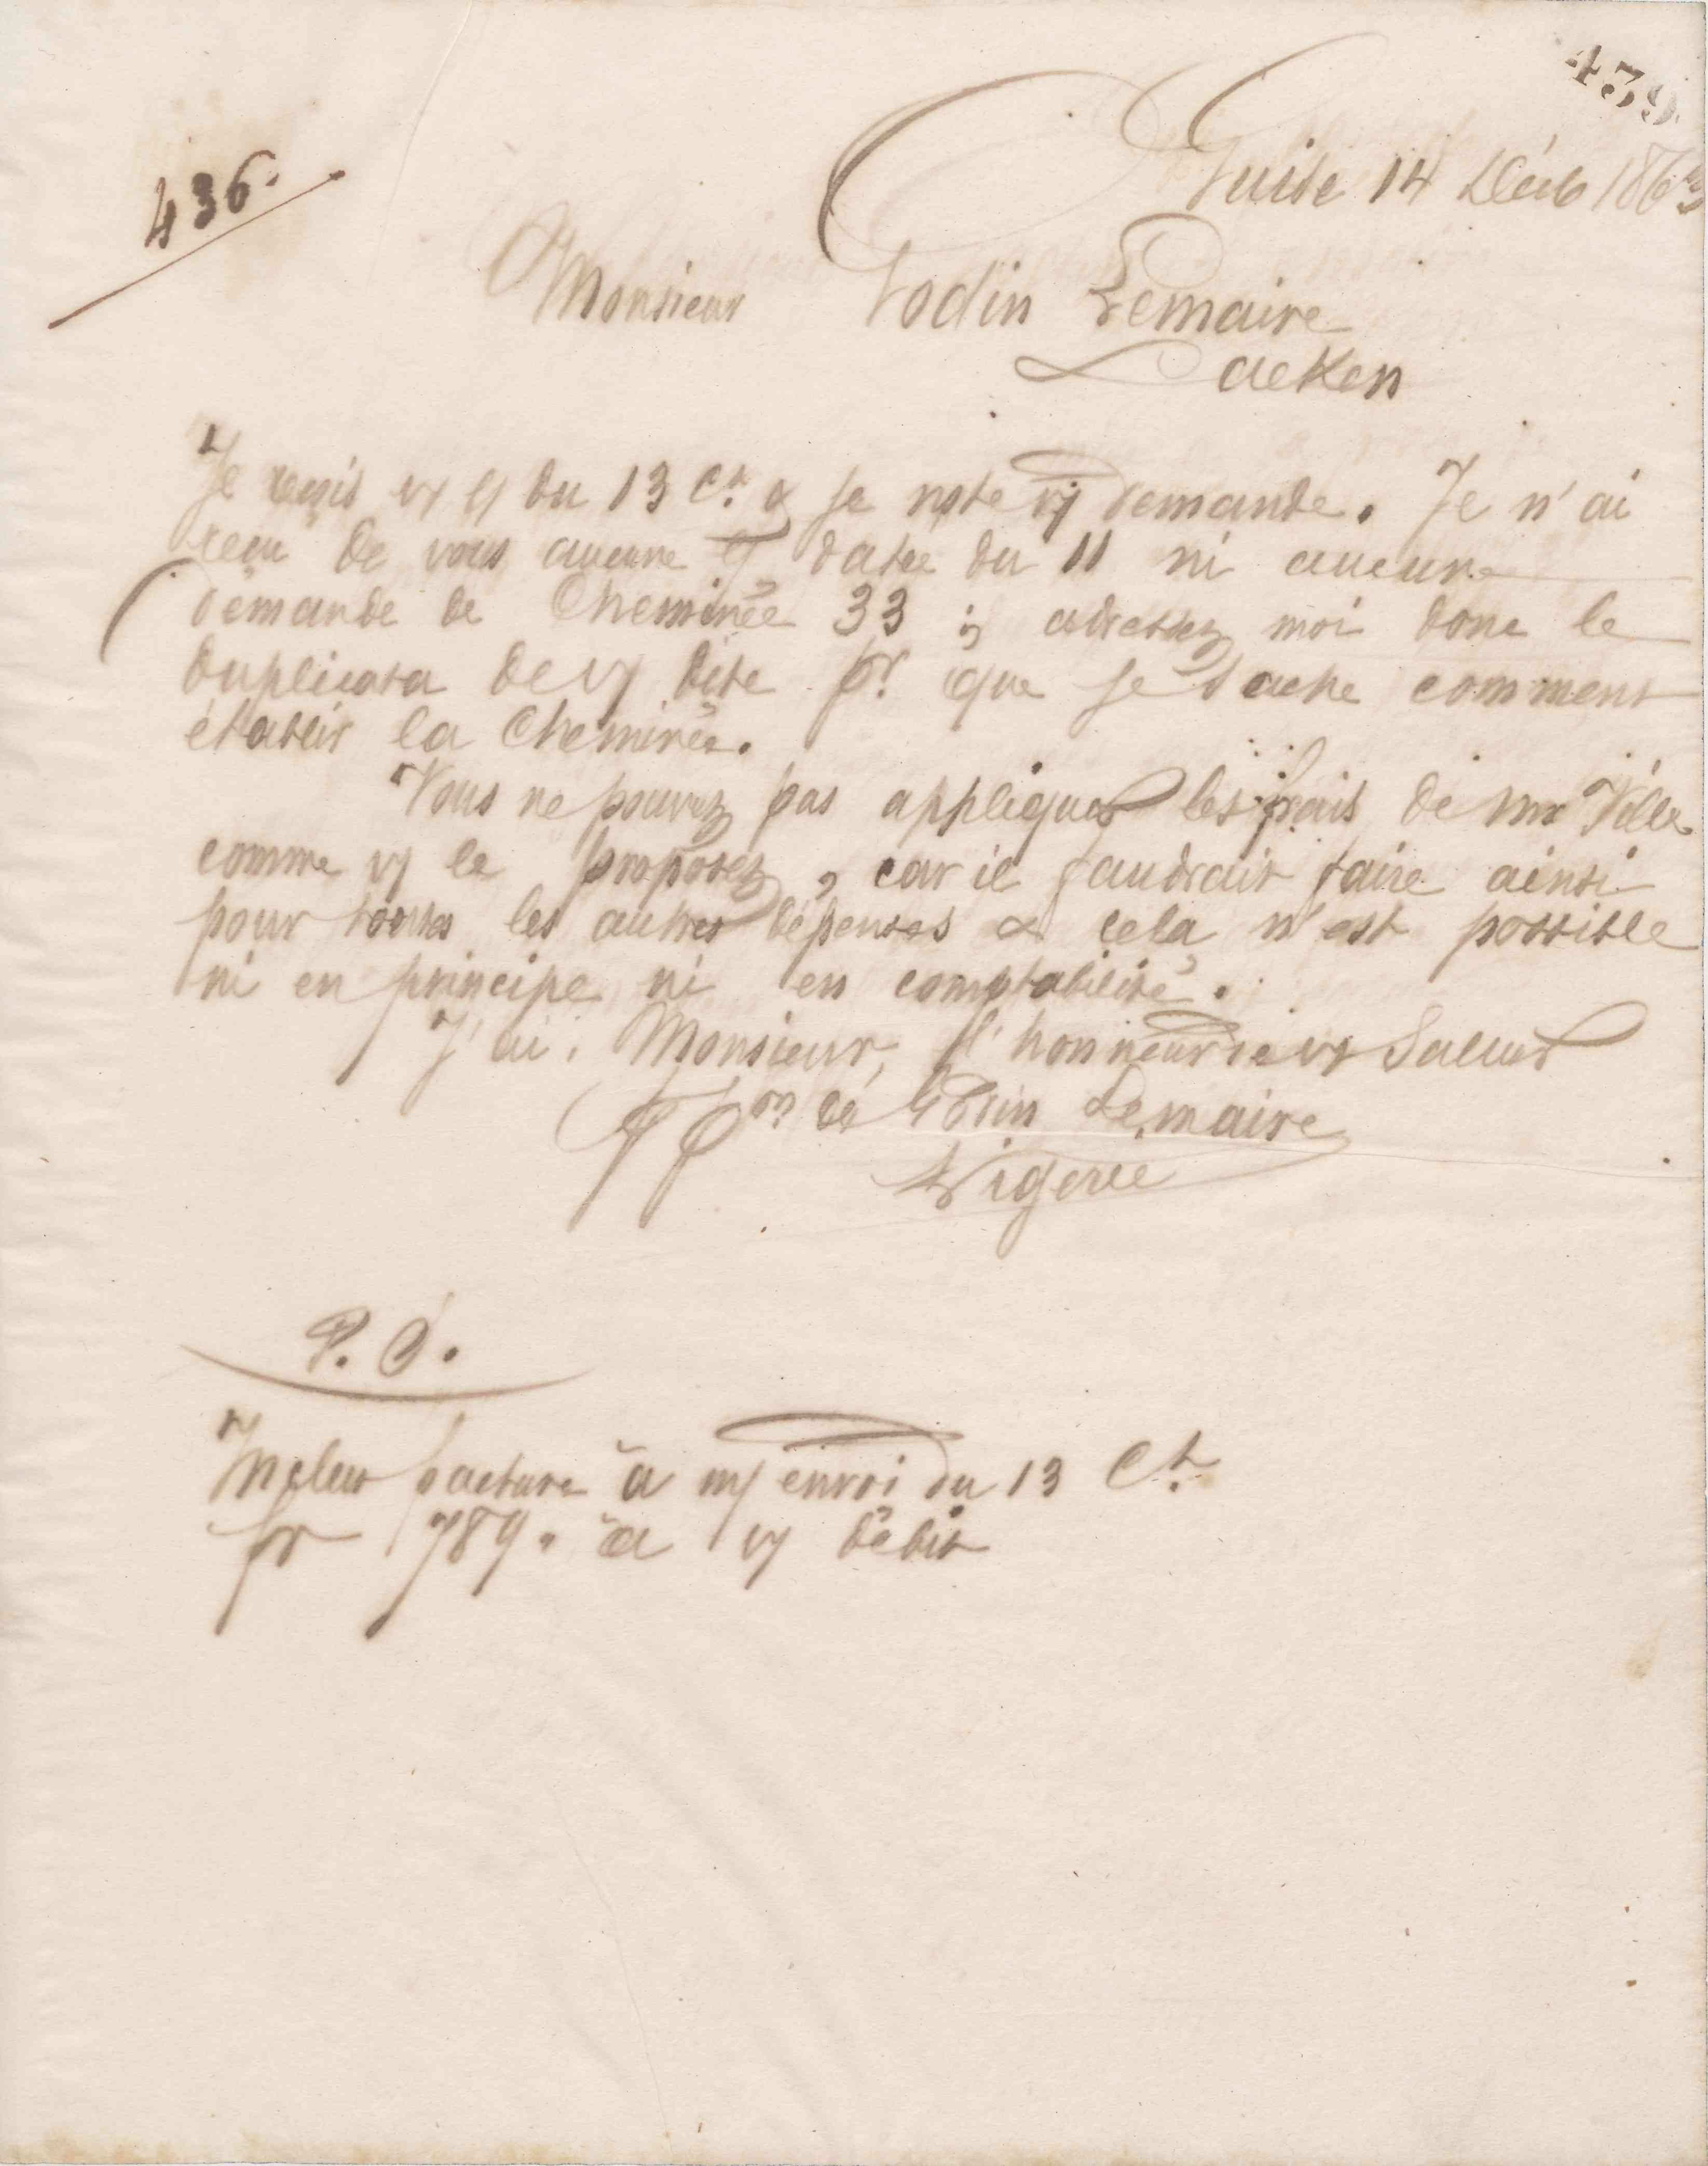 439
436.
Guise 14 Déc 1863
Monsieur Godin Lemaire
Laeken
Je reçois v/ l/ du 13 ct & je note v/ demande. Je n'ai
reçu de vous aucune l/ datée du 11 ni aucune
demande de Cheminée 33 ; adressez moi donc le
duplicata de v/ dite pr que je sache comment
établir la Cheminée.
Vous ne pouvez pas appliquer les frais de Mr Ville
comme v/ le proposez, car il faudrait faire ainsi
pour toutes les autres dépenses & cela n'est possible
ni en principe ni en comptabilité.
J'ai, Monsieur, l'honneur de v/ saluer
Pr Pon de Godin Lemaire
P. S.
Inclus facture à m/ envoi du 13 Ct
fr 789. à v/ débit